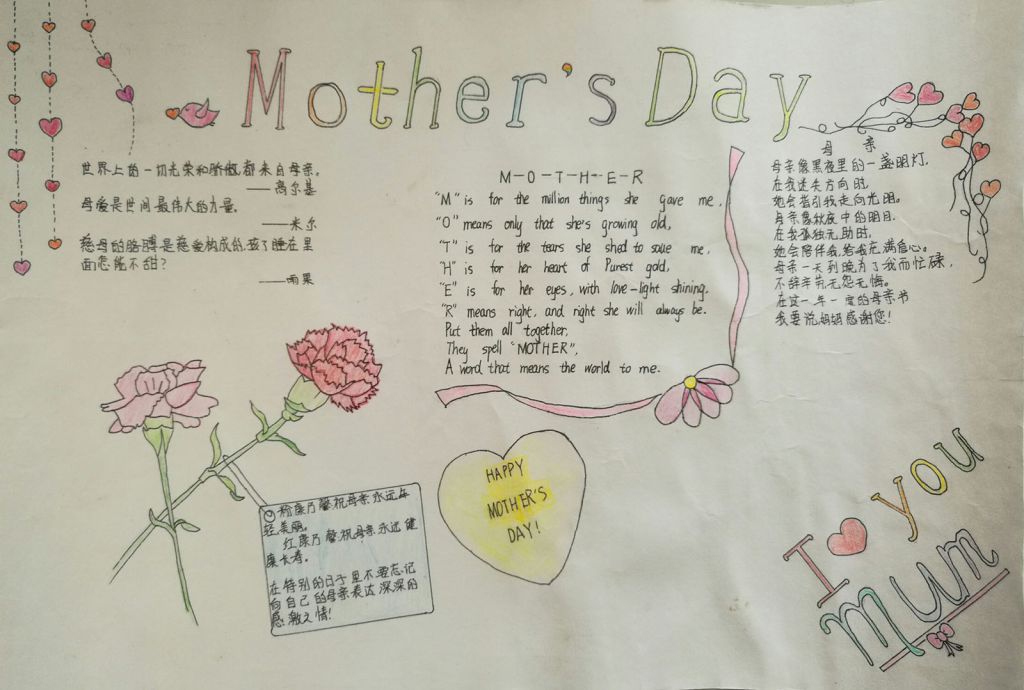 Mother's Day
世界上的一切光荣和骄傲,都来自母亲。
——高尔基
母爱是世间最伟大的力量。
——米尔
慈母的胳膊是慈爱构成的,孩子睡在里
面怎能不甜?
——雨果
M-O-T-H-E-R
"M" is for the million things she gave me,
"O" means only that she's growing old,
"T" is for the tears she shed to save me,
"H" is for her heart of Purest gold,
"E" is for her eyes, with love-light shining.
"R" means right, and right she will always be.
Put them all together,
They spell "MOTHER",
A word that means the world to me.
母 亲
母亲像黑夜里的一盏明灯,
在我迷失方向时,
她会指引我走向光明。
母亲像秋夜中的明月,
在我孤独无助时,
她会陪伴我,给我充满信心。
母亲一天到晚为了我而忙碌,
不辞辛劳无怨无悔。
在这一年一度的母亲节
我要说,妈妈感谢您!
粉康乃馨祝母亲永远年
轻美丽。
红康乃馨祝母亲永远健
康长寿。
在特别的日子里不要忘记
向自己的母亲表达深深的
感激之情!
HAPPY
MOTHER'S
DAY!
I you
mum